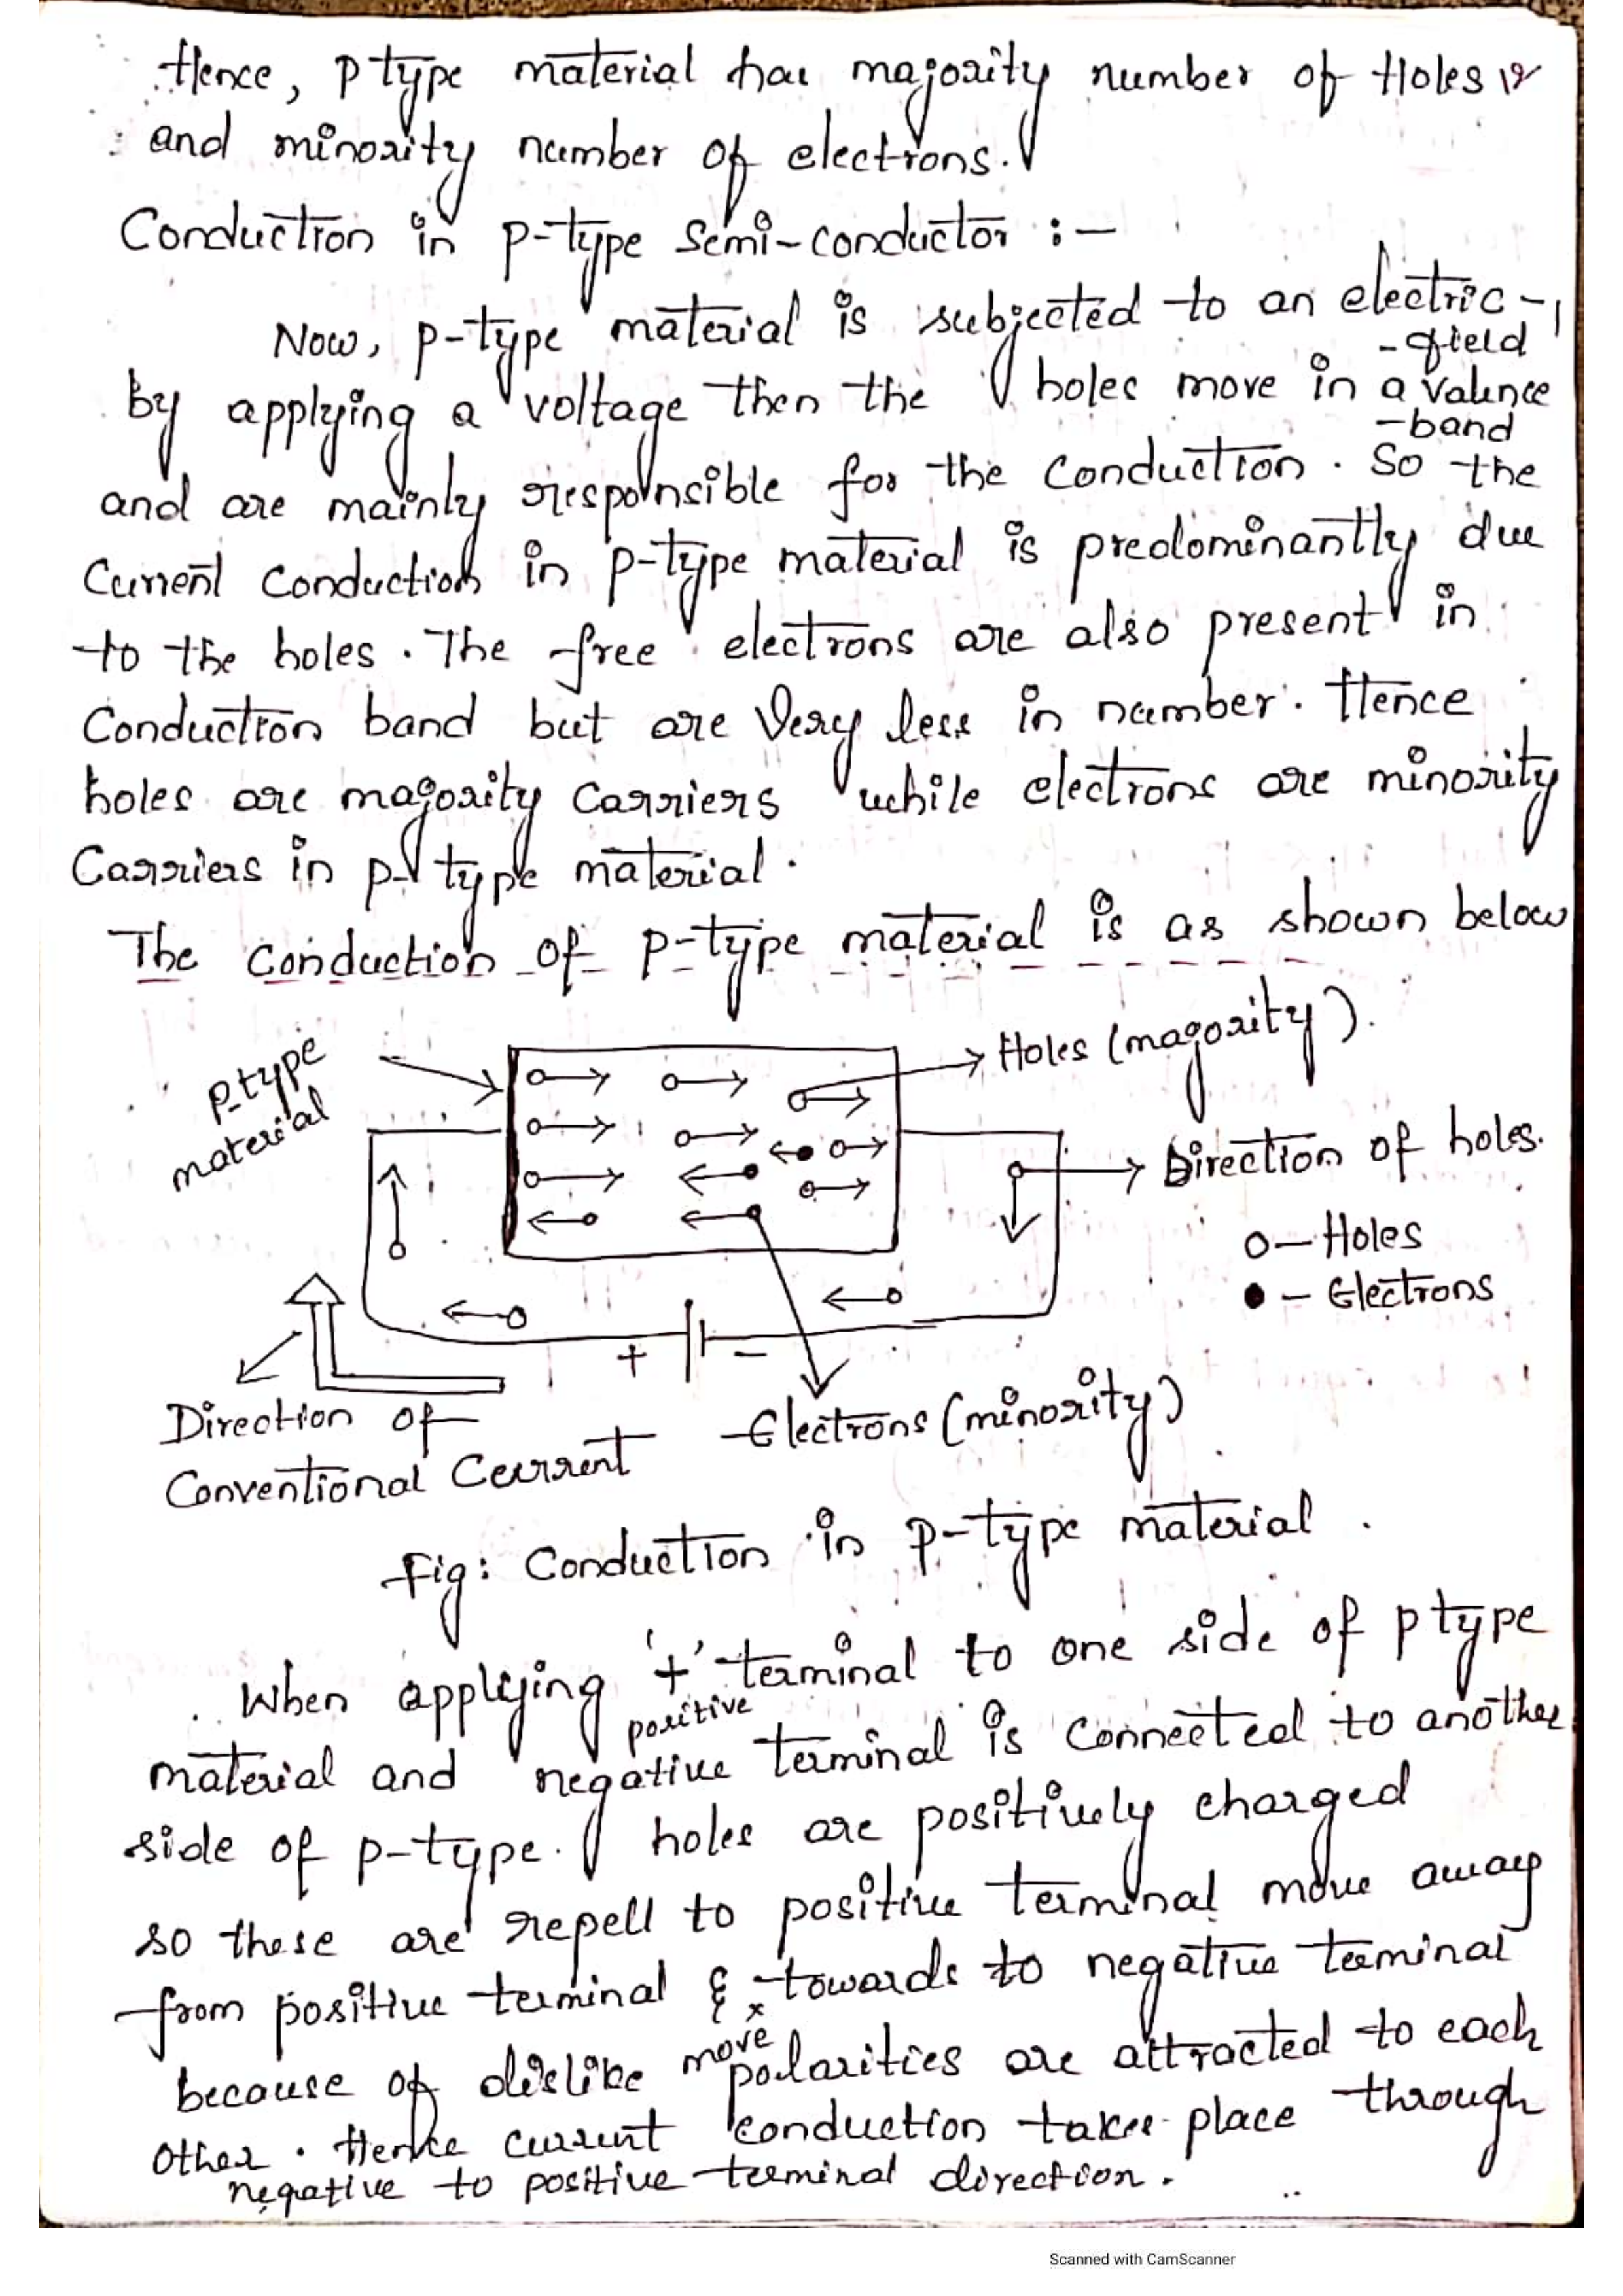 Hence, p type material has majority number of Holes
and minority number of electrons.
Conduction in p-type semi-conductor :-
Now, p-type material is subjected to an electric -
- field
by applying a voltage then the holes move in a valence
-band
and are mainly responsible for the conduction. So the
current conduction in p-type material is predominantly due
to the holes. The free electrons are also present in
Conduction band but are very less in number. Hence
holes are majority carriers while electrons are minority
Carriers in p-type material.
The conduction of p-type material is as shown below
p-type
material
Holes (majority).
Direction of holes.
o - Holes
● - Electrons
+ -
Direction of
Conventional Current
Electrons (minority)
Fig: Conduction in p-type material.
When applying '+' terminal to one side of p type
positive
material and negative terminal is connected to another
side of p-type. holes are positively charged
so these are repell to positive terminal move away
from positive terminal & towards to negative terminal
x
move
because of dislike polarities are attracted to each
other. Hence current conduction takes place through
negative to positive terminal direction.
Scanned with CamScanner